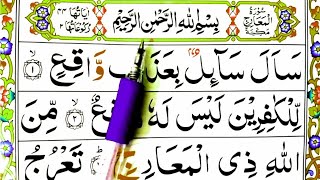 سُورَةُ الْمَعَارِجِ مَكِّيَّةٌ
بِسْمِ اللّٰهِ الرَّحْمٰنِ الرَّحِيْمِ
اٰيَاتُهَا ٤٤
سَاَلَ سَآئِلٌۢ بِعَذَابٍ وَّاقِعٍ ۙ﴿۱﴾
لِّلْكٰفِرِيْنَ لَيْسَ لَهٗ دَافِعٌ ۙ﴿۲﴾ مِّنَ
اللّٰهِ ذِى الْمَعَارِجِ ؕ﴿۳﴾ تَعْرُجُ